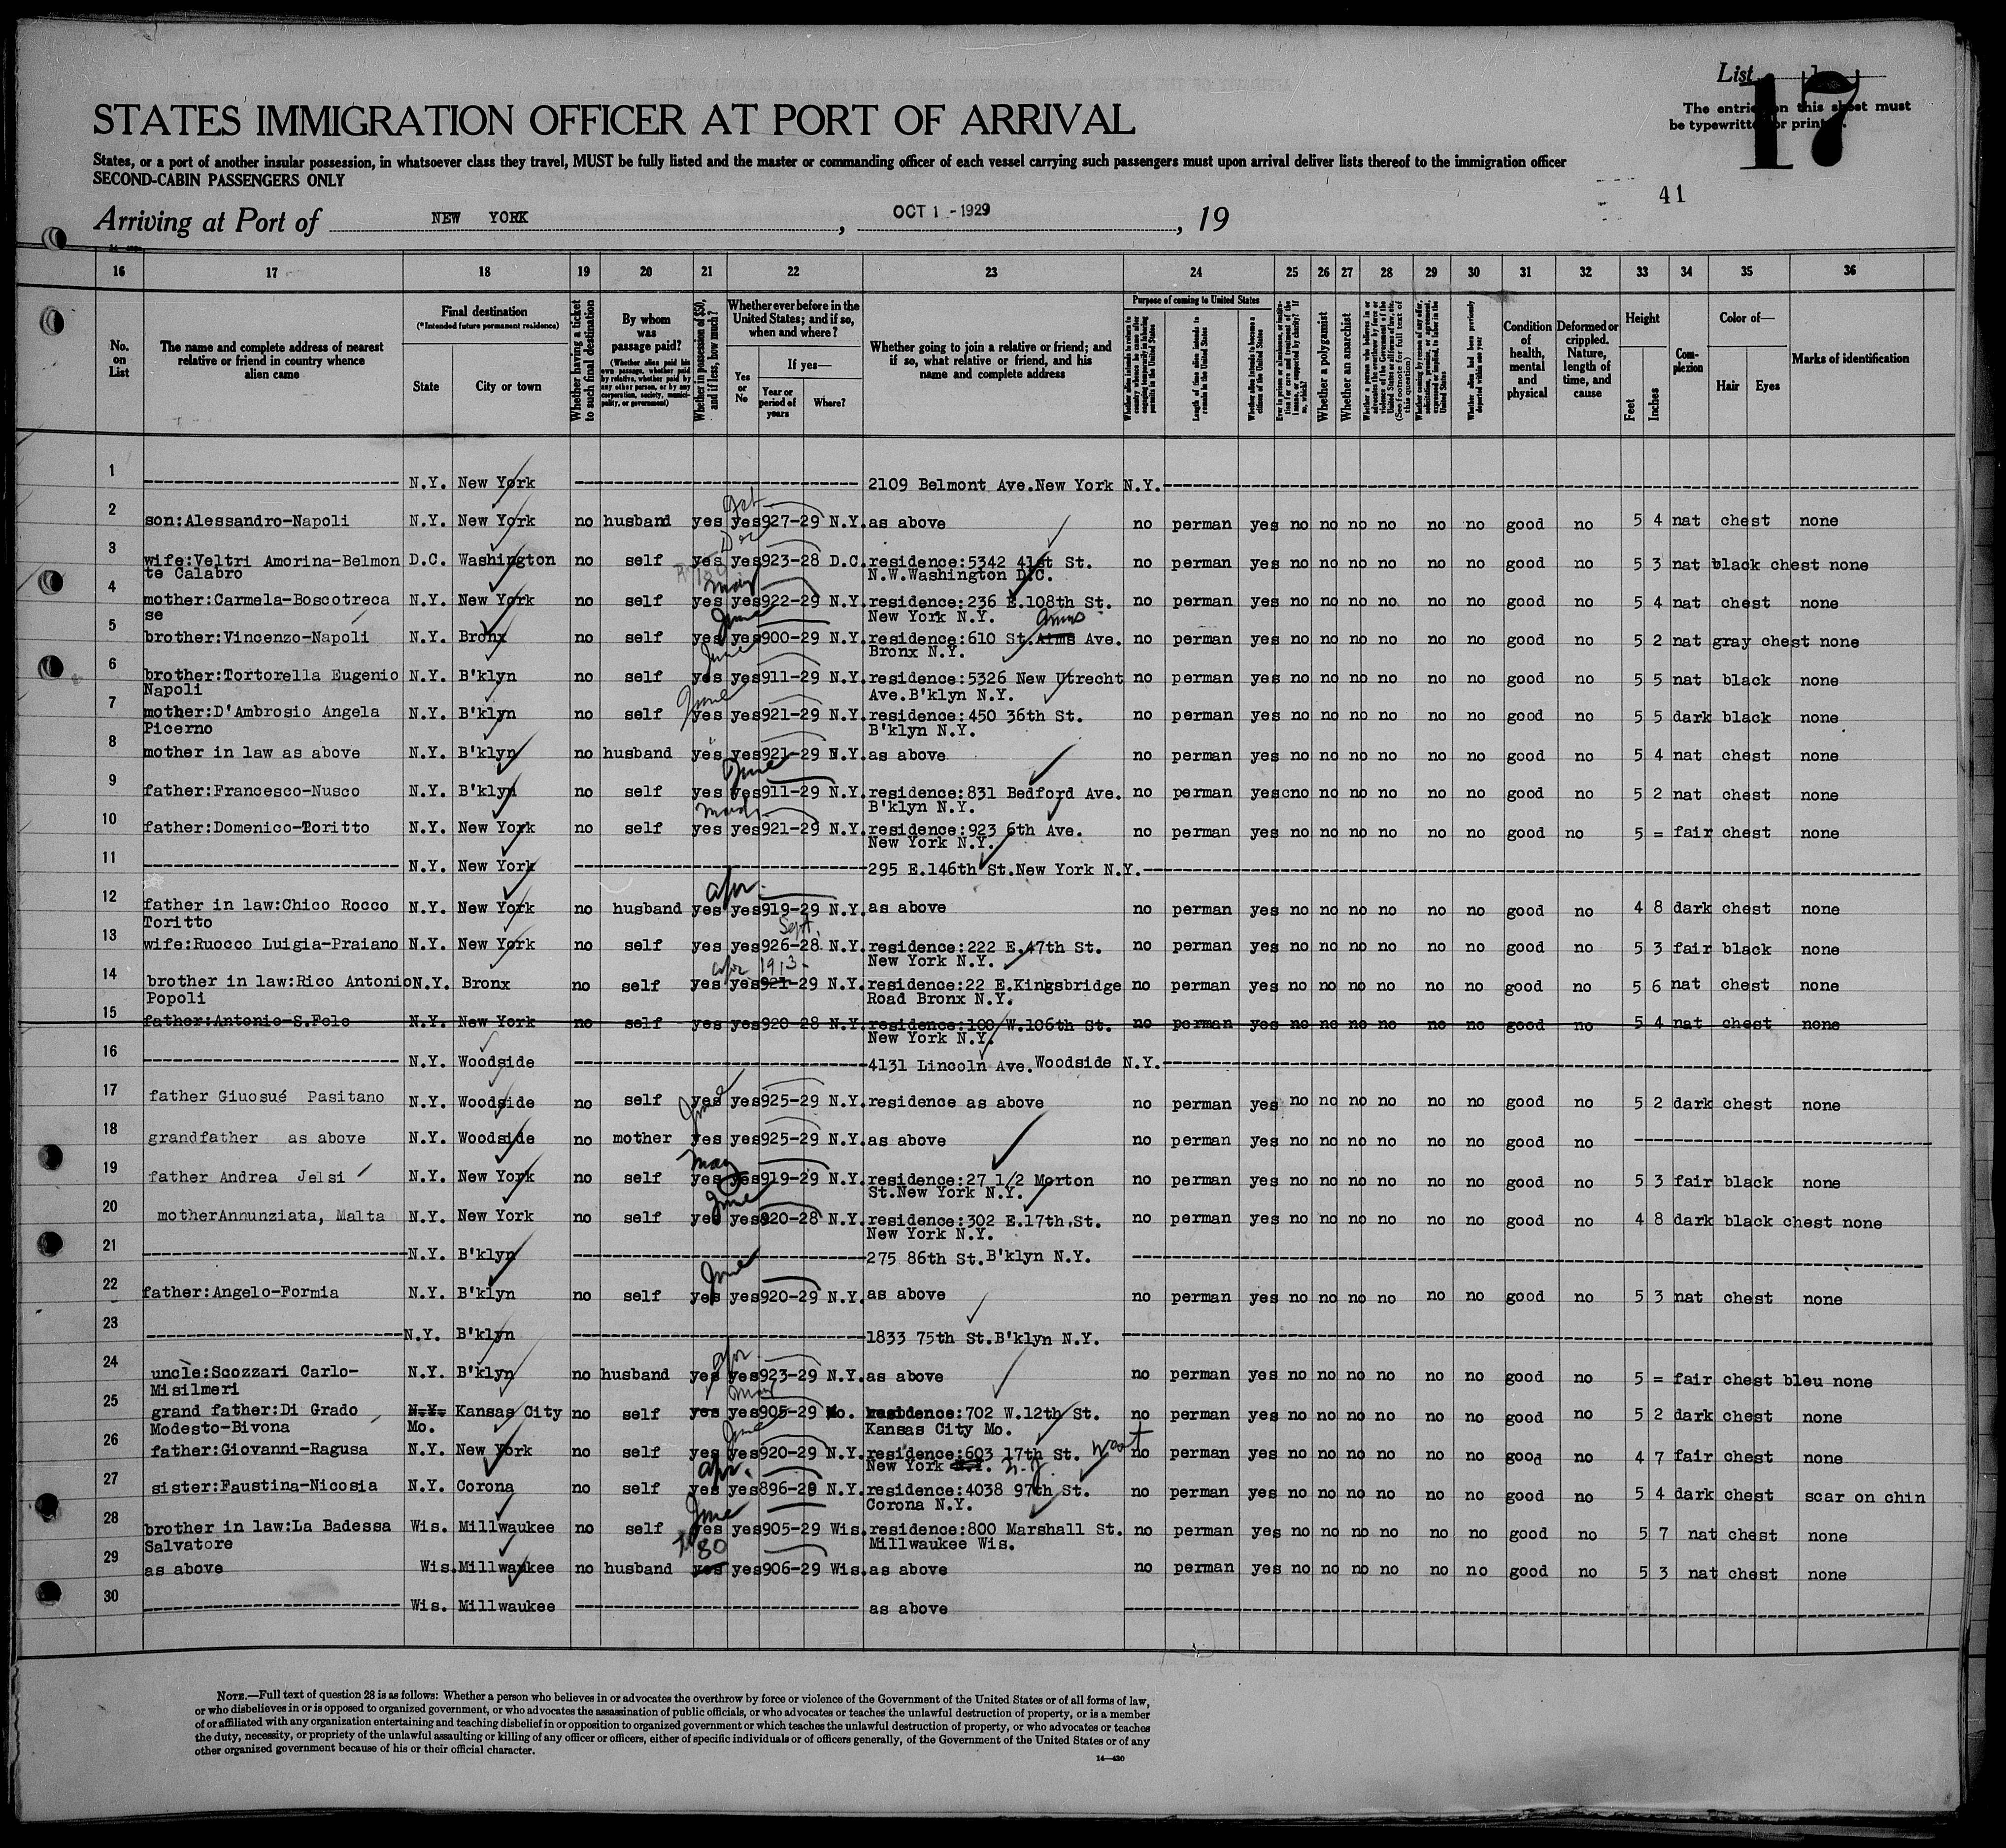 List 1
17
The entries on this sheet must
be typewritten or printed.
STATES IMMIGRATION OFFICER AT PORT OF ARRIVAL
States, or a port of another insular possession, in whatsoever class they travel, MUST be fully listed and the master or commanding officer of each vessel carrying such passengers must upon arrival deliver lists thereof to the immigration officer
SECOND-CABIN PASSENGERS ONLY
41
Arriving at Port of NEW YORK, OCT 1 - 1929, 19
16 17 18 19 20 21 22 23 24 25 26 27 28 29 30 31 32 33 34 35 36
No. on List
The name and complete address of nearest relative or friend in country whence alien came
Final destination
(*Intended future permanent residence)
State
City or town
Whether having a ticket to such final destination
By whom was passage paid?
(Whether alien paid his own passage, whether paid by relative, whether paid by any other person, or by any corporation, society, municipality, or government)
Whether in possession of $50, and if less, how much?
Whether ever before in the United States; and if so, when and where?
Yes or No
If yes—
Year or period of years
Where?
Whether going to join a relative or friend; and if so, what relative or friend, and his name and complete address
Purpose of coming to United States
Whether alien intends to return to country whence he came after engaging temporarily in laboring pursuits in the United States
Length of time alien intends to remain in the United States
Whether alien intends to become a citizen of the United States
Ever in prison or almshouse, or institution for care and treatment of the insane, or supported by charity? If so, which?
Whether a polygamist
Whether an anarchist
Whether a person who believes in or advocates the overthrow by force or violence of the Government of the United States or all forms of law, etc. (See footnote for full text of this question)
Whether coming by reason of any offer, solicitation, promise, or agreement, expressed or implied, to labor in the United States
Whether alien had been previously deported within one year
Condition of health, mental and physical
Deformed or crippled. Nature, length of time, and cause
Height
Feet
Inches
Complexion
Color of—
Hair
Eyes
Marks of identification
1 N.Y. New York 2109 Belmont Ave.New York N.Y.
Oct
2 son:Alessandro-Napoli N.Y. New York no husband yes yes 927-29 N.Y. as above no perman yes no no no no no no good no 5 4 nat chest none
Dec
3 wife:Veltri Amorina-Belmon D.C. Washington no self yes yes 923-28 D.C. residence:5342 41st St. no perman yes no no no no no no good no 5 3 nat black chest none
te Calabro N.W.Washington D.C.
May
4 mother:Carmela-Boscotreca N.Y. New York no self yes yes 922-29 N.Y. residence:236 E.108th St. no perman yes no no no no no no good no 5 4 nat chest none
se New York N.Y.
June Anns
5 brother:Vincenzo-Napoli N.Y. Bronx no self yes yes 900-29 N.Y. residence:610 St.Aims Ave. no perman yes no no no no no no good no 5 2 nat gray chest none
Bronx N.Y.
June
6 brother:Tortorella Eugenio N.Y. B'klyn no self yes yes 911-29 N.Y. residence:5326 New Utrecht no perman yes no no no no no no good no 5 5 nat black none
Napoli Ave.B'klyn N.Y.
June
7 mother:D'Ambrosio Angela N.Y. B'klyn no self yes yes 921-29 N.Y. residence:450 36th St. no perman yes no no no no no no good no 5 5 dark black none
Picerno B'klyn N.Y.
"
8 mother in law as above N.Y. B'klyn no husband yes yes 921-29 N.Y. as above no perman yes no no no no no no good no 5 4 nat chest none
June
9 father:Francesco-Nusco N.Y. B'klyn no self yes yes 911-29 N.Y. residence:831 Bedford Ave. no perman yescno no no no no no good no 5 2 nat chest none
B'klyn N.Y.
March
10 father:Domenico-Toritto N.Y. New York no self yes yes 921-29 N.Y. residence:923 6th Ave. no perman yes no no no no no no good no 5 = fair chest none
New York N.Y.
11 N.Y. New York 295 E.146th St.New York N.Y.
Apr.
12 father in law:Chico Rocco N.Y. New York no husband yes yes 919-29 N.Y. as above no perman yes no no no no no no good no 4 8 dark chest none
Toritto
Sept.
13 wife:Ruocco Luigia-Praiano N.Y. New York no self yes yes 926-28 N.Y. residence:222 E.47th St. no perman yes no no no no no no good no 5 3 fair black none
New York N.Y.
apr 1913-
14 brother in law:Rico Antonio N.Y. Bronx no self yes yes 921-29 N.Y. residence:22 E.Kingsbridge no perman yes no no no no no no good no 5 6 nat chest none
Popoli Road Bronx N.Y.
15 father:Antonio-S.Fele N.Y. New York no self yes yes 920-28 N.Y. residence:100 W.106th St. no perman yes no no no no no no good no 5 4 nat chest none
New York N.Y.
16 N.Y. Woodside 4131 Lincoln Ave. Woodside N.Y.
17 father Giuosué Pasitano N.Y. Woodside no self yes yes 925-29 N.Y. residence as above no perman yes no no no no no no good no 5 2 dark chest none
June
18 grandfather as above N.Y. Woodside no mother yes yes 925-29 N.Y. as above no perman yes no no no no no no good no
May
19 father Andrea Jelsi N.Y. New York no self yes yes 919-29 N.Y. residence:27 1/2 Morton no perman yes no no no no no no good no 5 3 fair black none
St.New York N.Y.
June
20 motherAnnunziata, Malta N.Y. New York no self yes yes 920-28 N.Y. residence:302 E.17th.St. no perman yes no no no no no no good no 4 8 dark black chest none
New York N.Y.
21 N.Y. B'klyn 275 86th St.B'klyn N.Y.
June
22 father:Angelo-Formia N.Y. B'klyn no self yes yes 920-29 N.Y. as above no perman yes no no no no no no good no 5 3 nat chest none
23 N.Y. B'klyn 1833 75th St.B'klyn N.Y.
apr
24 uncle:Scozzari Carlo- N.Y. B'klyn no husband yes yes 923-29 N.Y. as above no perman yes no no no no no no good no 5 = fair chest bleu none
Misilmeri
May
25 grand father:Di Grado N.Y. Kansas City no self yes yes 905-29 Mo. residence:702 W.12th St. no perman yes no no no no no no good no 5 2 dark chest none
Modesto-Bivona Mo. Kansas City Mo.
June West
26 father:Giovanni-Ragusa N.Y. New York no self yes yes 920-29 N.Y. residence:603 17th St. no perman yes no no no no no no good no 4 7 fair chest none
New York N.Y. N.J.
Apr.
27 sister:Faustina-Nicosia N.Y. Corona no self yes yes 896-29 N.Y. residence:4038 97th St. no perman yes no no no no no no good no 5 4 dark chest scar on chin
Corona N.Y.
June
28 brother in law:La Badessa Wis. Millwaukee no self yes yes 905-29 Wis. residence:800 Marshall St. no perman yes no no no no no no good no 5 7 nat chest none
Salvatore Millwaukee Wis.
80
29 as above Wis. Millwaukee no husband yes yes 906-29 Wis. as above no perman yes no no no no no no good no 5 3 nat chest none
30 Wis. Millwaukee as above
NOTE.—Full text of question 28 is as follows: Whether a person who believes in or advocates the overthrow by force or violence of the Government of the United States or of all forms of law,
or who disbelieves in or is opposed to organized government, or who advocates the assassination of public officials, or who advocates or teaches the unlawful destruction of property, or is a member
of or affiliated with any organization entertaining and teaching disbelief in or opposition to organized government or which teaches the unlawful destruction of property, or who advocates or teaches
the duty, necessity, or propriety of the unlawful assaulting or killing of any officer or officers, either of specific individuals or of officers generally, of the Government of the United States or of any
other organized government because of his or their official character.
14—430